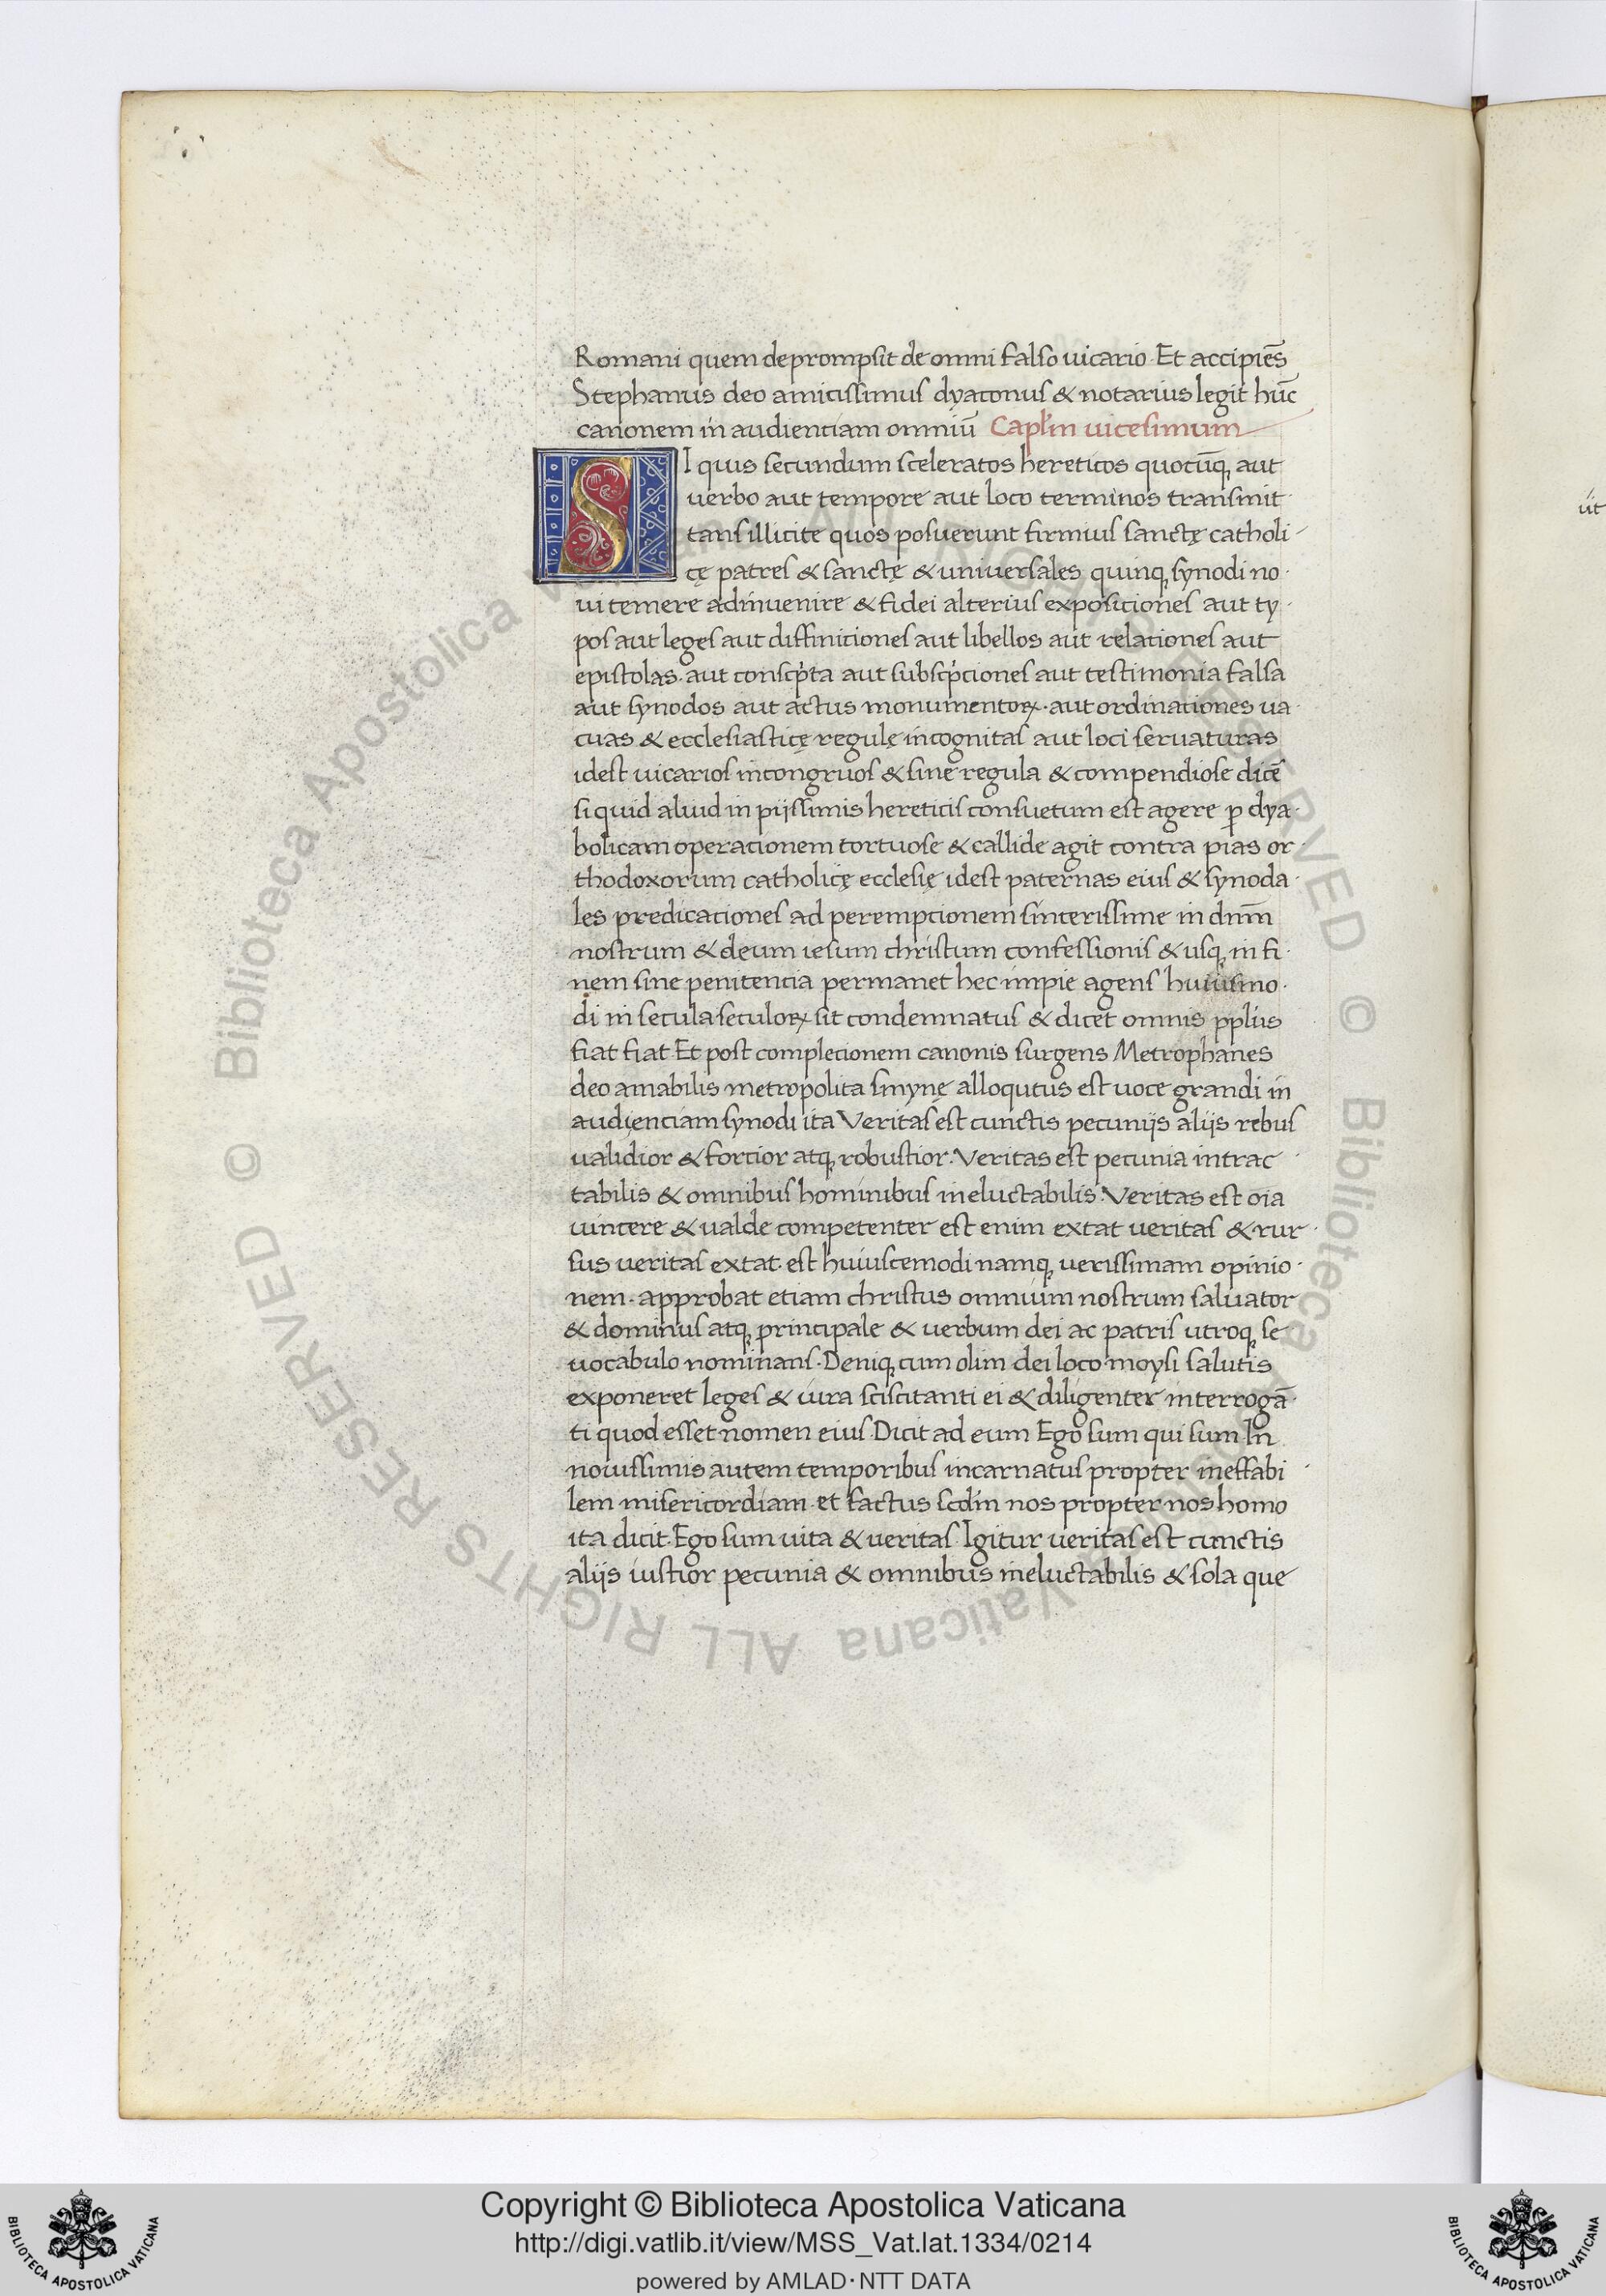 Romani quem deprompsit de omni falso uicario. Et accipiēs
Stephanus deo amicissimus dyaconus & notarius legit hūc
canonem in audientiam omniū Capl'm uicesimum
SI quis secundum sceleratos hereticos quocūq, aut
uerbo aut tempore aut loco terminos transmit
tans illicite quos posuerunt firmius sanctę catholi-
cę patres & sanctę & universales quinq, synodi no-
ui temere adinuenire & fidei alterius expositiones aut ty-
pos aut leges aut diffinitiones aut libellos aut relationes aut
epistolas. aut conscp̓ta aut subscp̓ciones aut testimonia falsa
aut synodos aut actus monumentoꝝ. aut ordinationes ua-
cuas & ecclesiasticę regulę incognitas aut loci seruaturas
idest uicarios incongruos & sine regula & compendiose dicē
si quid aliud in piissimis hereticis consuetum est agere ꝑ dya-
bolicam operacionem tortuose & callide agit contra pias or-
thodoxorum catholicę ecclesię idest paternas eius & synoda-
les predicaciones ad perempcionem sincerissime in dn̄m
nostrum & deum iesum christum confessionis & usq, in fi-
nem sine penitencia permanet hec impie agens huiusmo-
di in secula seculoꝝ sit condemnatus & dicet omnis pplūs
fiat fiat. Et post complecionem canonis surgens Metrophanes
deo amabilis metropolita smynę alloqutus est uoce grandi in
audienciam synodi ita Veritas est cunctis pecuniis aliis rebus
ualidior & forcior atq, robustior. Veritas est pecunia intrac
tabilis & omnibus hominibus ineluctabilis. Veritas est oīa
uincere & ualde competenter est enim extat veritas & rur-
sus veritas extat. est huiuscemodi namq, verissimam opinio-
nem. approbat etiam christus omnium nostrum saluator
& dominus atq, principale & verbum dei ac patris utroq, se
uocabulo nominans. Deniq, cum olim dei loco moysi salutis
exponeret leges & iura sciscitanti ei & diligenter interrogā-
ti quod esset nomen eius. Dicit ad eum Ego sum qui sum. In
nouissimis autem temporibus incarnatus propter ineffabi
lem misericordiam. et factus scd'm nos propter nos homo
ita dicit. Ego sum uita & veritas. Igitur veritas est cunctis
aliis iustior pecunia & omnibus ineluctabilis & sola que
ut
© Biblioteca Apostolica Vaticana ALL RIGHTS RESERVED © Biblioteca Apostolica Vaticana ALL RIGHTS RESERVED
BIBLIOTECA APOSTOLICA VATICANA
Copyright © Biblioteca Apostolica Vaticana
http://digi.vatlib.it/view/MSS_Vat.lat.1334/0214
powered by AMLAD·NTT DATA
BIBLIOTECA APOSTOLICA VATICANA